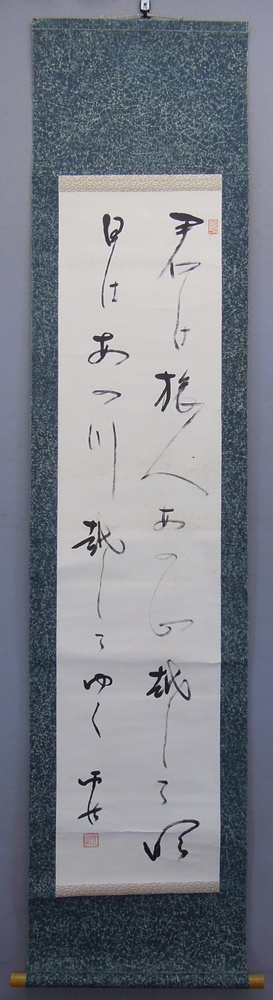 君は旅人あの山越して明
日はあの川越してゆく